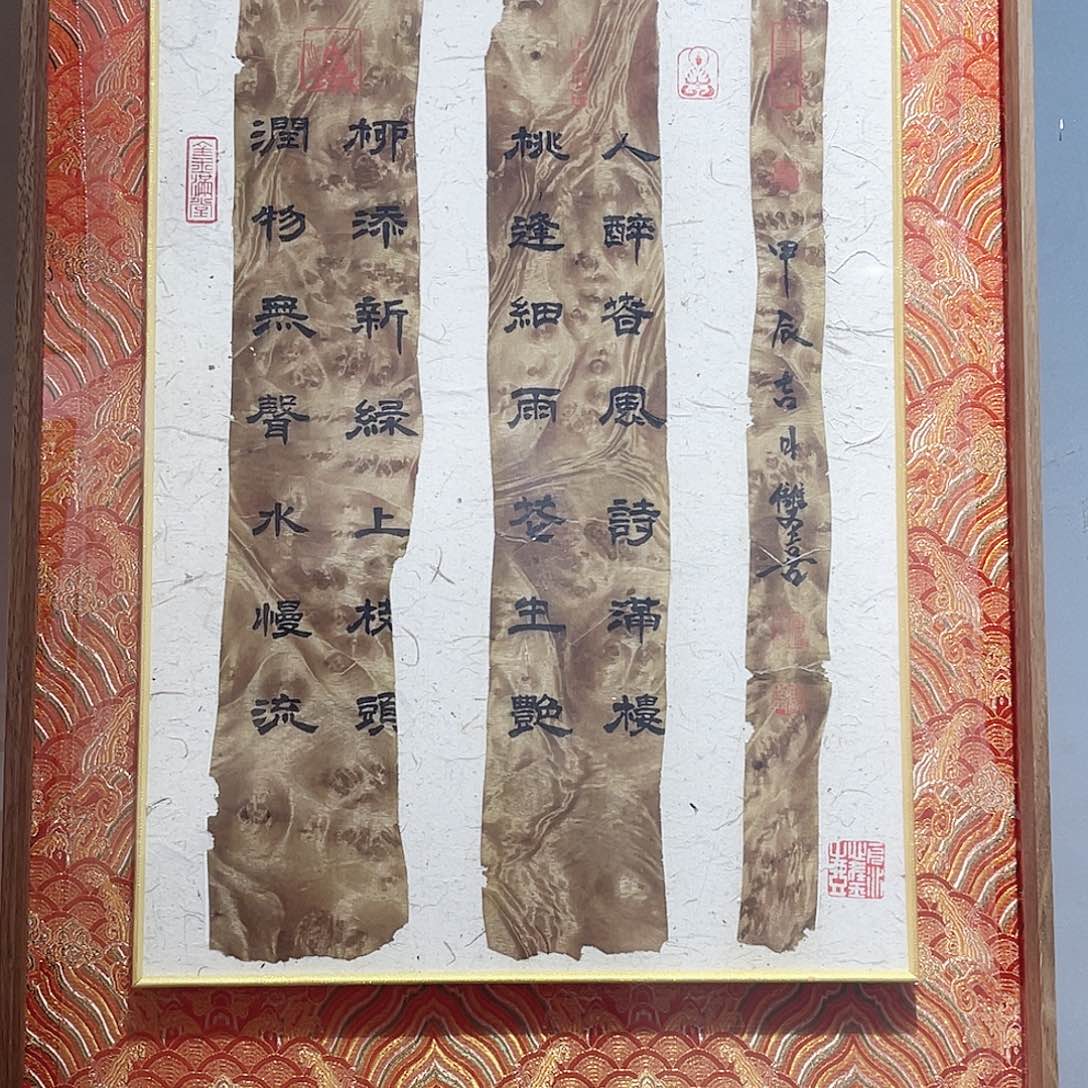 金玉滿堂
潤物無聲水慢流
柳添新綠上枝頭
桃逢細雨花生艷
人醉春風詩滿樓
甲辰吉日